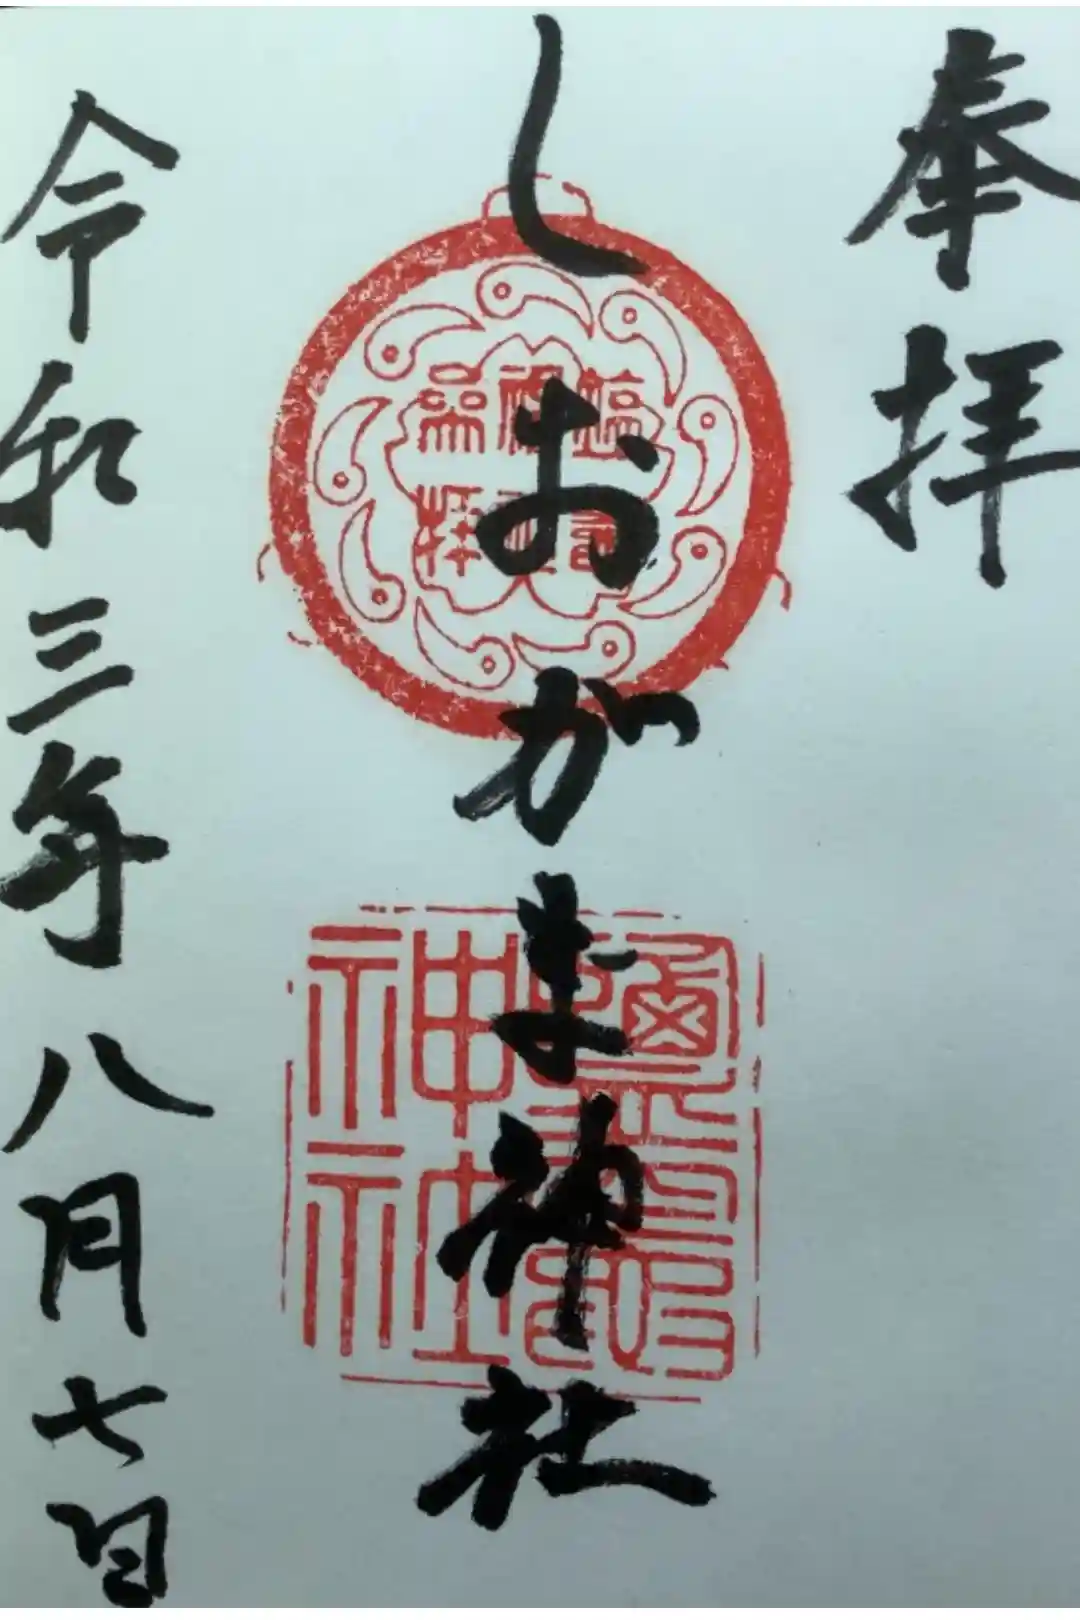 奉拝
しおがま神社
鹽竈神社
令和三年八月七日